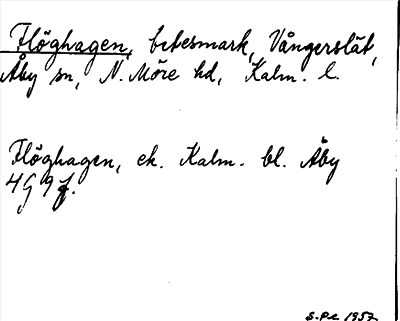 Flöghagen, betesmark, Vångerslät,
Åby sn, N. Möre hd, Kalm. l.
Flöghagen, ek. Kalm. bl. Åby
4G 9f.
S.Pe 1957